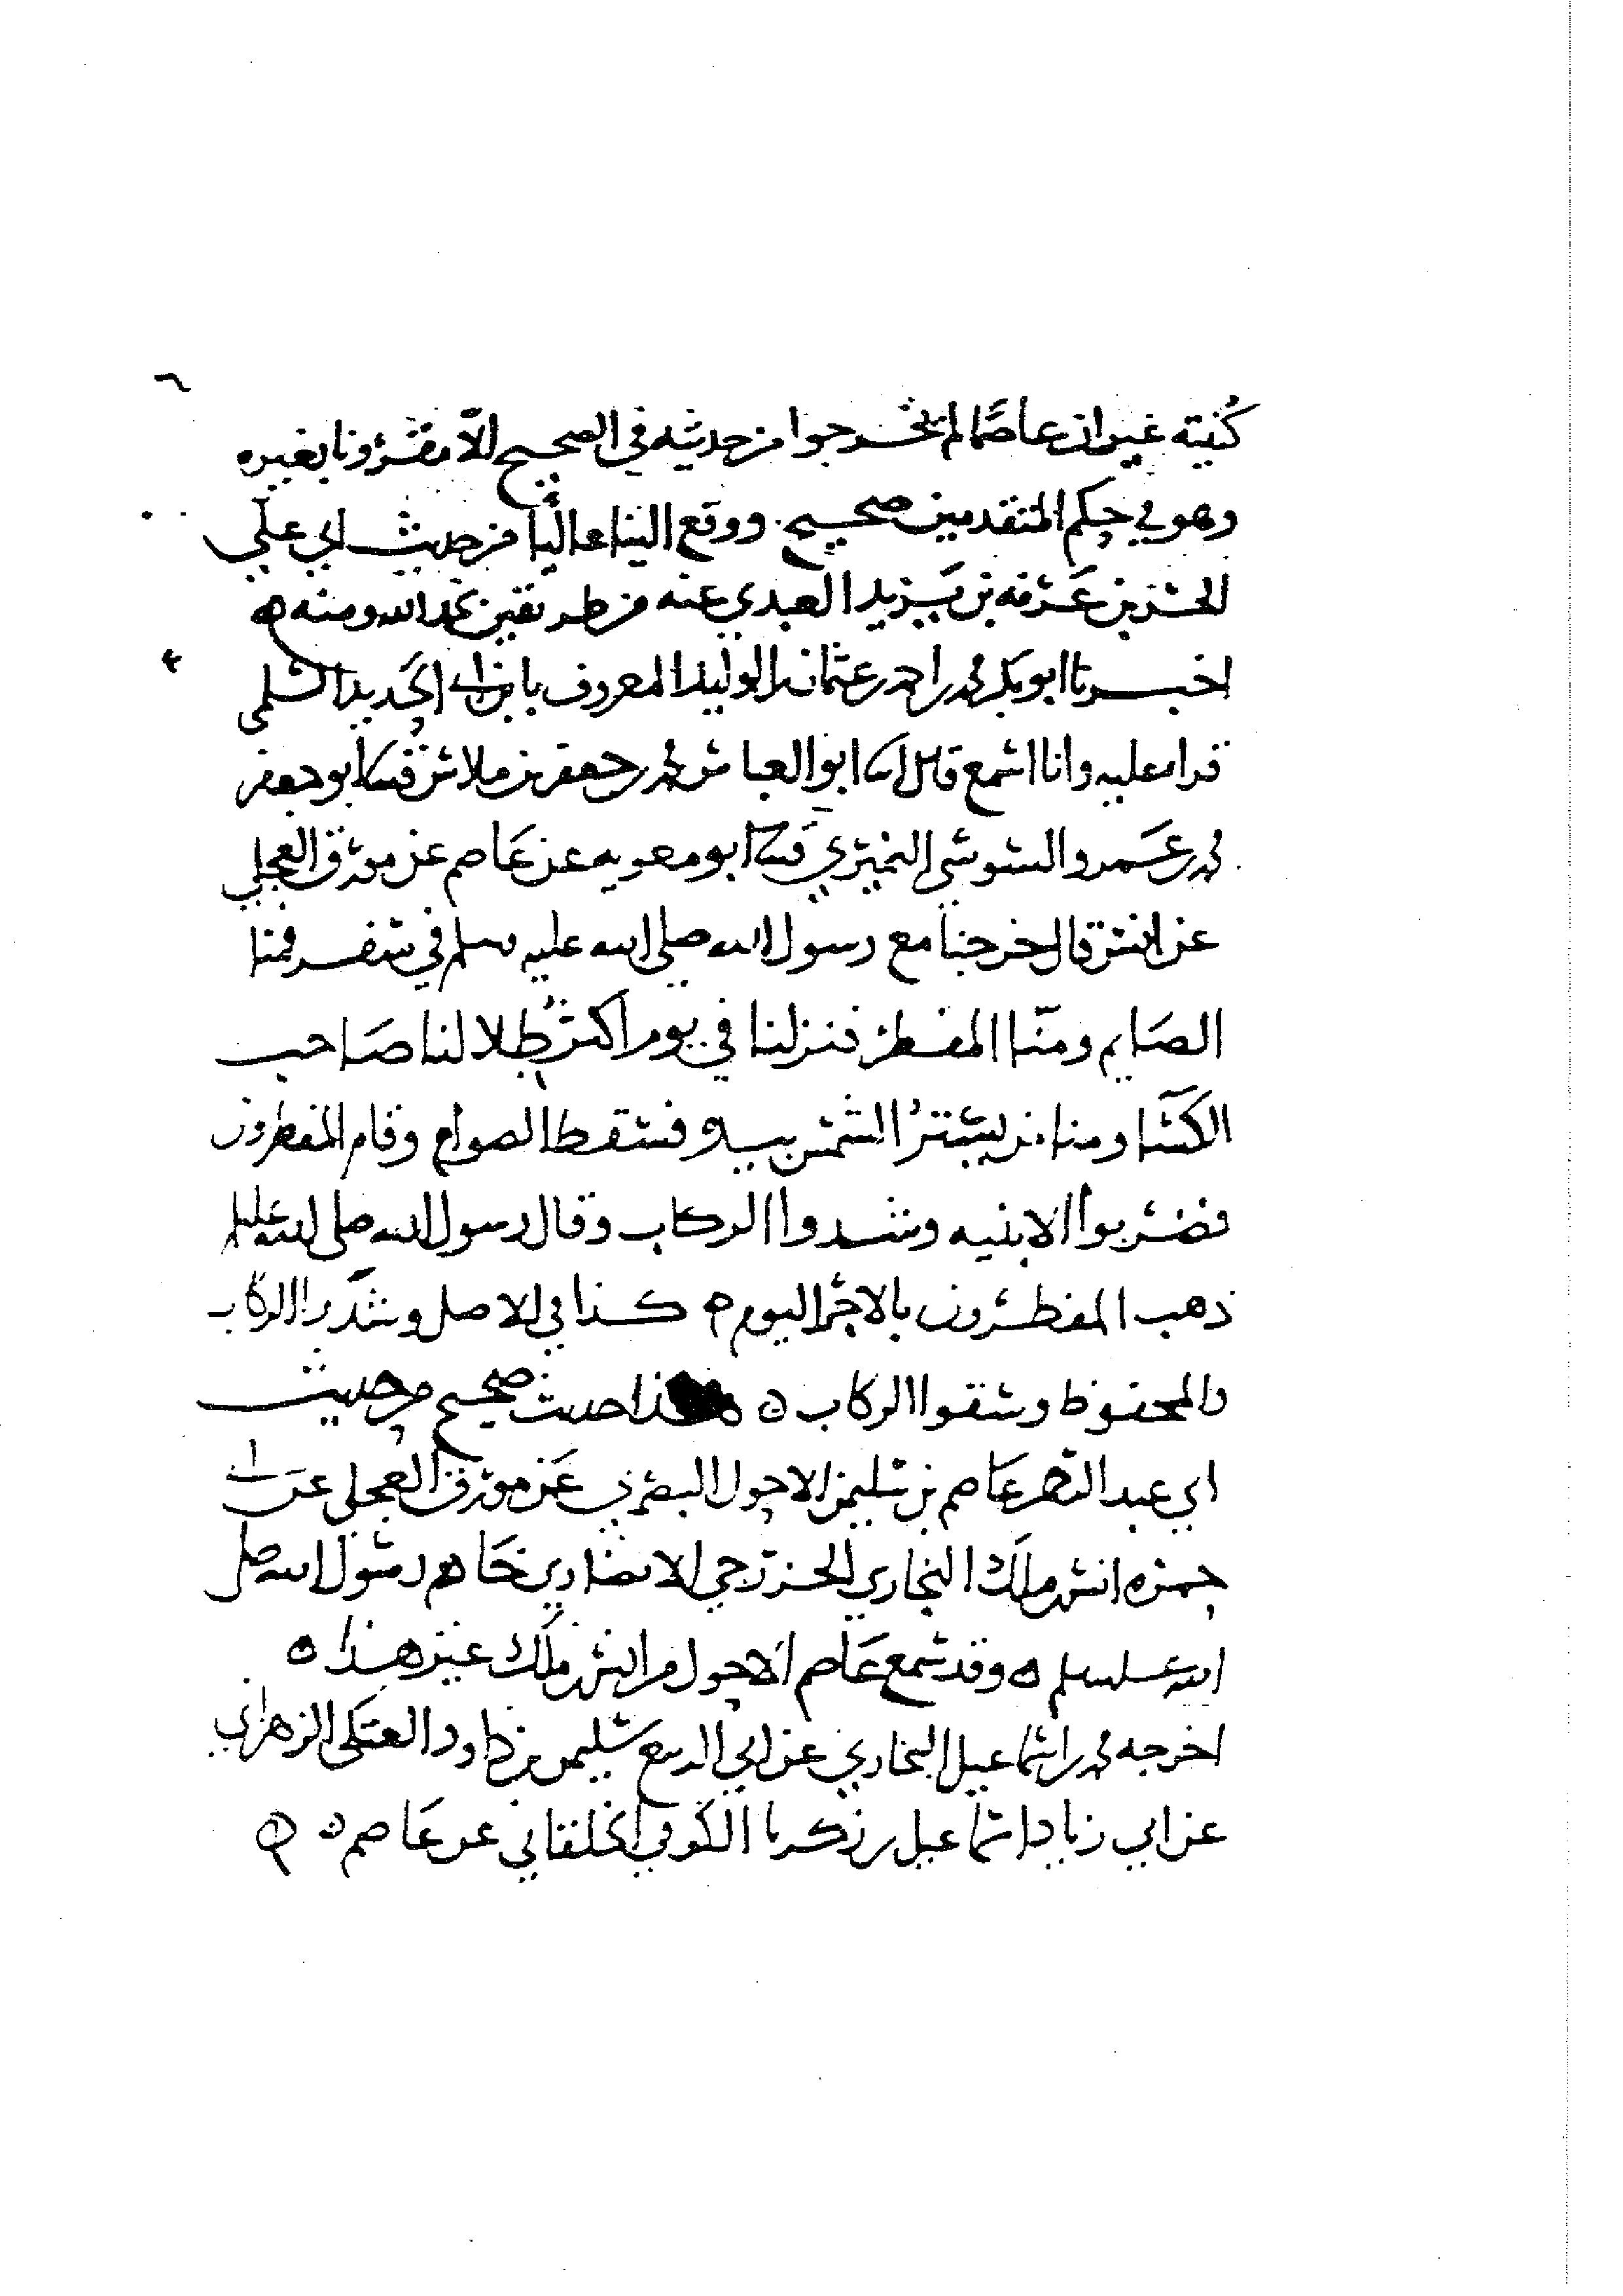 كنيته غير ان عاصما لم يخرجوا من حديثه في الصحيح الا مقرونا بغيره
وهو في حكم المتقدمين صحيح ووقع الينا عاليا من حديث ابي علي
الحسن بن عرفه بن يزيد العبدي عنه من طريقين بحمد الله ومنه ه
اخبرنا ابو بكر محمد بن احمد بن عثمان بن الوليد المعروف بابن ابي الحديد السلمي
قراه عليه وانا اسمع قال انا ابو العباس محمد بن جعفر بن ملاس قثنا ابو جعفر
محمد بن عمرو السوسي النميري قثنا ابو معويه عن عاصم عن مورق العجلي
عن انس قال خرجنا مع رسول الله صلى الله عليه وسلم في سفر فمنا
الصايم ومنا المفطر فنزلنا في يوم اكثر ظلا لنا صاحب
الكسا ومنا من يستتر الشمس بيده فسقط الصوام وقام المفطرون
فضربوا الابنيه وشدوا الركاب وقال رسول الله صلى الله عليه
ذهب المفطرون بالاجر اليوم ه كذا في الاصل وشدوا الركاب
والمحفوظ وسقوا الركاب ه هذا حديث صحيح من حديث
ابي عبد الرحمن عاصم بن سليمن الاحول البصري عن مورق العجلي عن ابي
حمزه انس بن ملك النجاري الخزرجي الانصاري خادم رسول الله صلى
الله عليه وسلم ه وقد سمع عاصم الاحول من انس بن ملك غير هذا ه
اخرجه محمد بن اسماعيل البخاري عن ابي الربيع سليمن بن داود العتكي الزهراني
عن ابي زياد اسماعيل بن زكريا الكوفي الخلقاني عن عاصم ه ه